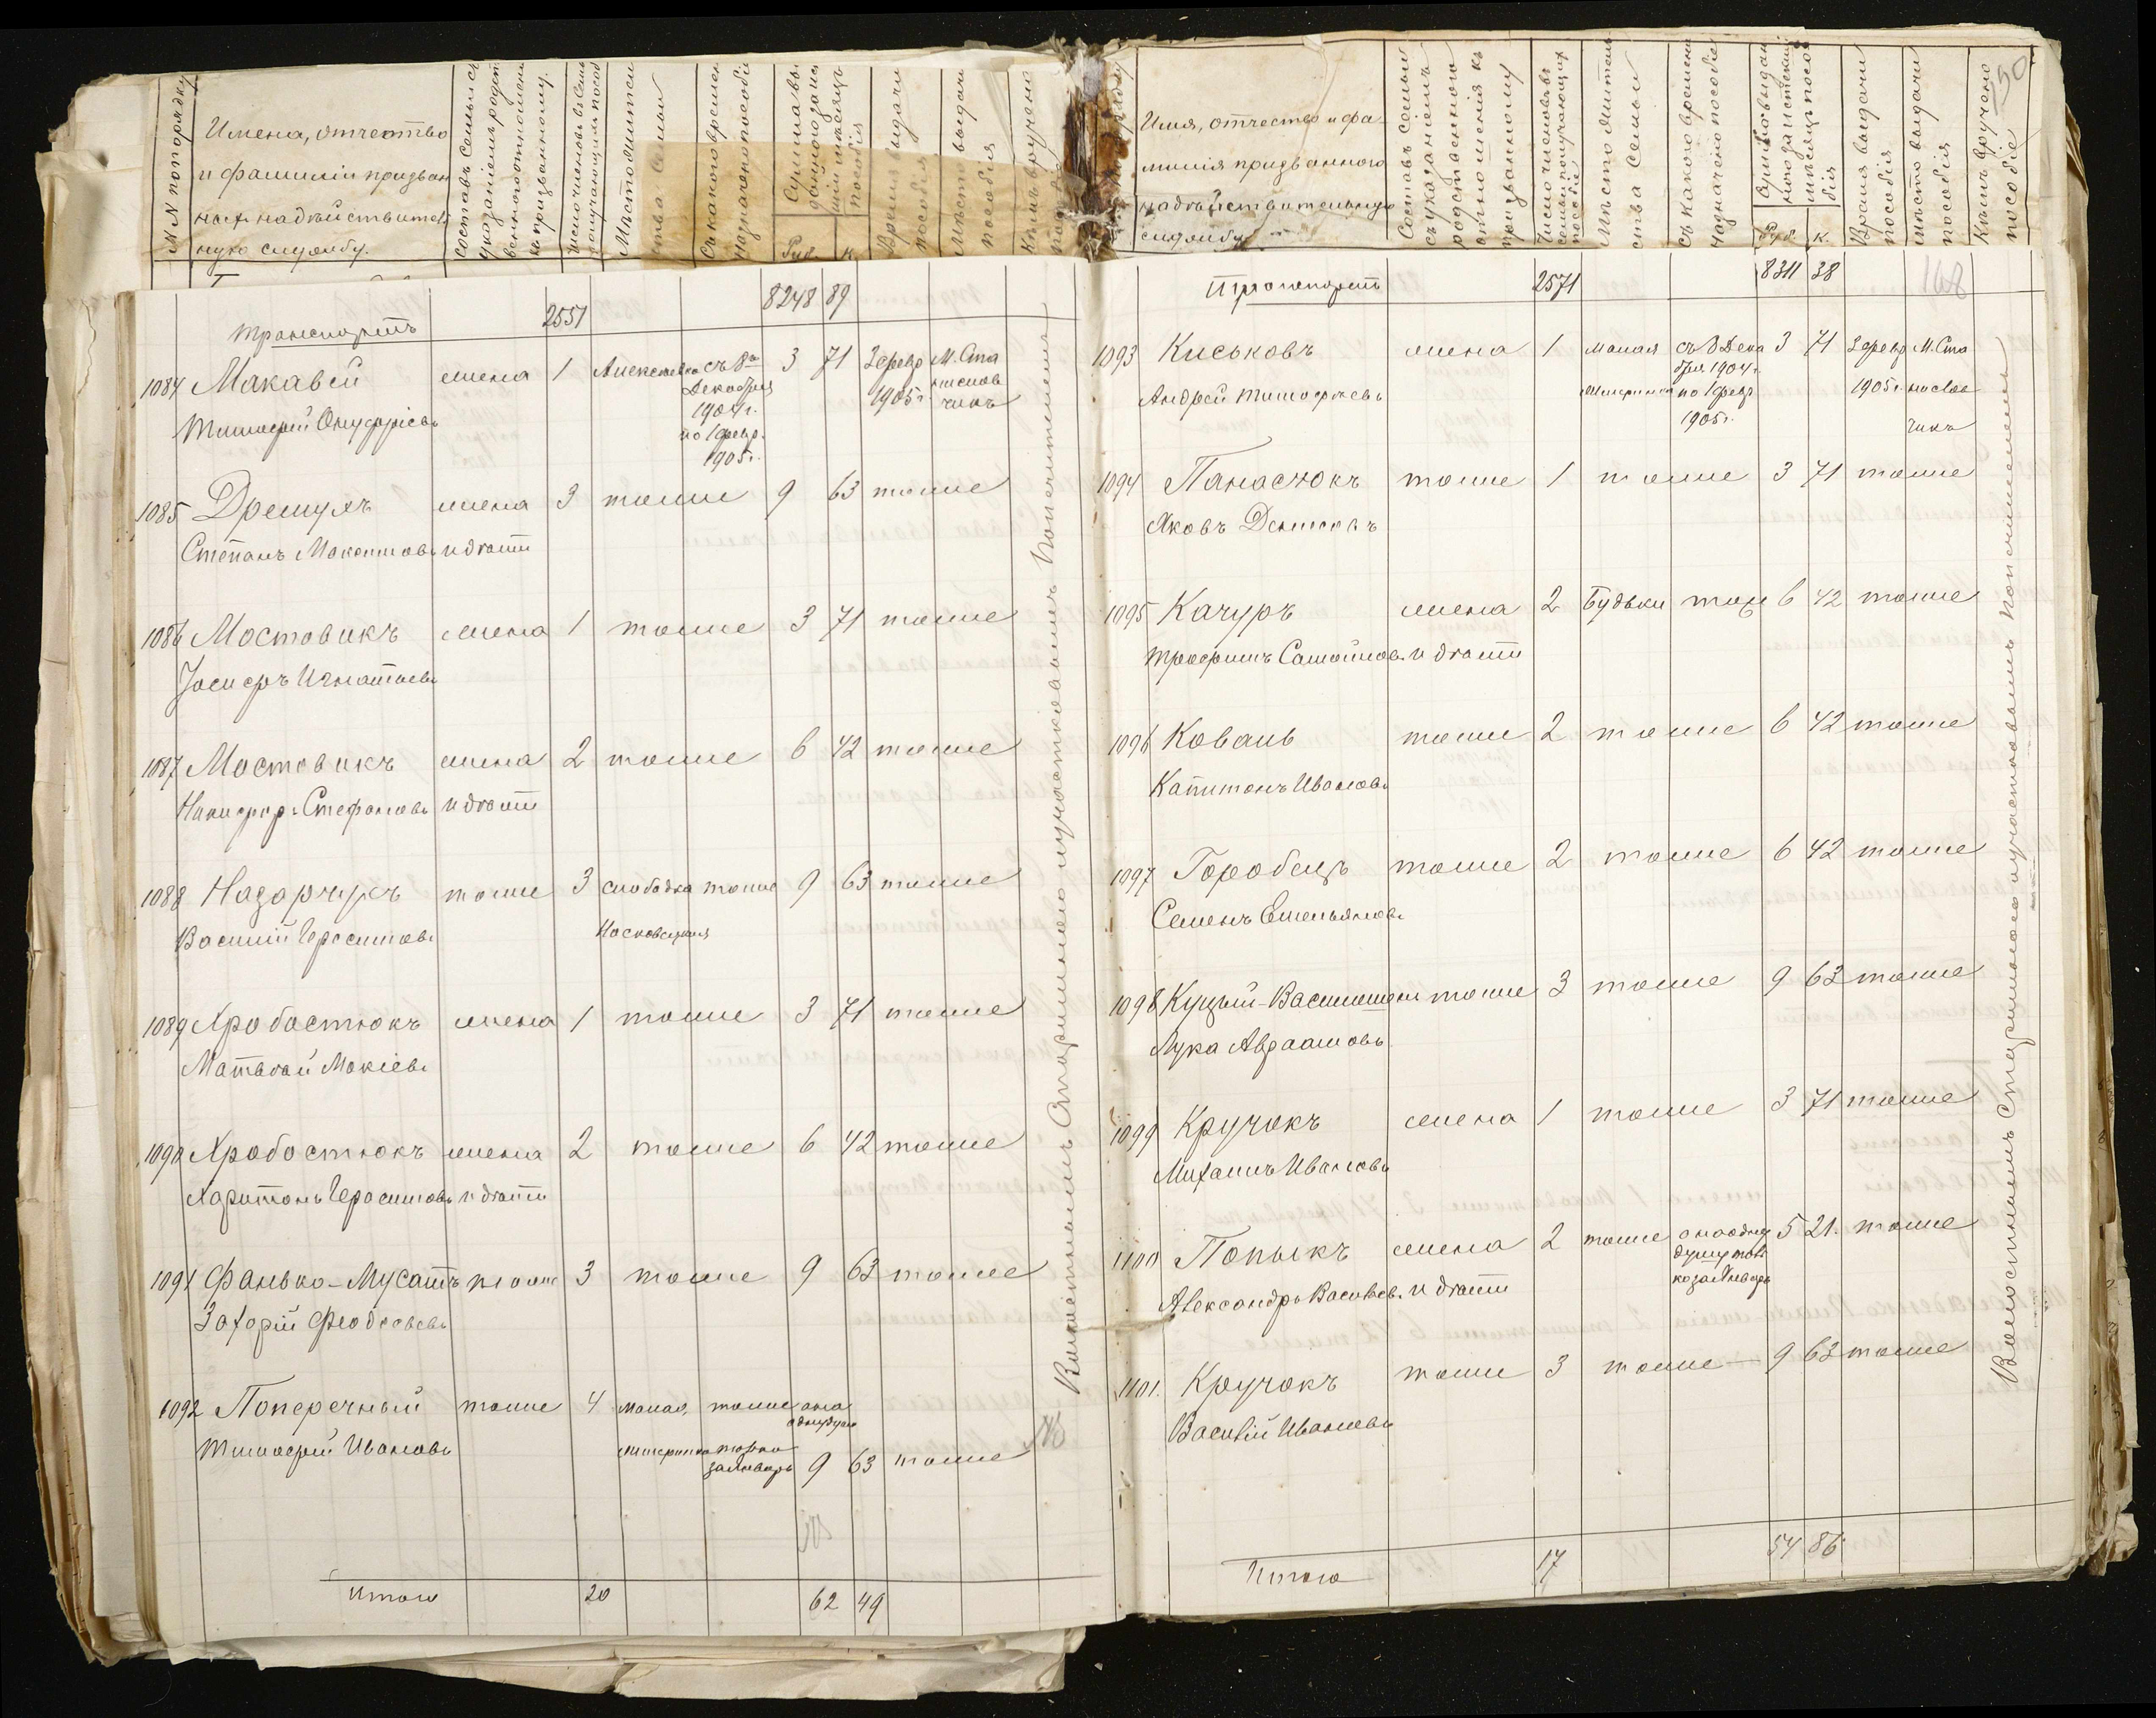 №№ по порядку
Имена, отчество
и фамиліи призван
на дѣйствитель
ную службу.
Составъ семьи съ
указаніемъ родст
веннаго отношенія
къ призванному.
Число членовъ въ семьѣ
получающихъ пособ
Мѣсто житель
ства семьи
Съ какого времени
назначено пособіе
Сумма вы
даннаго за
мѣсяцъ
пособія
Руб. К.
Время выдачи
пособія
Мѣсто выдачи
пособія
Кѣмъ вручено
Транспортъ 2551 8248 89
1084 Макавей жена 1 Алексѣевка съ 8го 3 71 3 февр М. Ста
Декабря
1904 г. 1905 г. нислав
чикъ
Тимофей Онуфріевъ по 1 февр.
1905 г.
1085 Дремухъ жена 3 тоже 9 63 тоже
Степанъ и дѣти
1086 Мостовикъ жена 1 тоже 3 71 тоже
Іосифъ Игнатьевъ
1087 Мостовикъ жена 2 тоже 6 42 тоже
Никифоръ Стефановъ и дѣти
1088 Назарчукъ тоже 3 слободка тоже 9 63 тоже
Василій Герасимовъ
1089 Хробастюкъ жена 1 тоже 3 71 тоже
Матвѣй Мокіевъ
1090 Хробостюкъ жена 2 тоже 6 42 тоже
Харитонъ Герасимовъ и дѣти
1091 Фанько-Мусатъ тоже 3 тоже 9 63 тоже
Захарій Феодосьевъ
1092 Поперечный тоже 4 Малая тоже а на
одну душу
Тимофей Ивановъ только
за Январь 9 63 тоже
Итого 20 62 49
Волостнымъ Старшиною и участковымъ Попечителемъ
Имя, отчество и фа-
милія призваннаго
на дѣйствительную
службу
Составъ семьи
съ указаніемъ
родственнаго
отношенія къ
призванному
Число членовъ въ
семьѣ получающихъ
пособіе
Мѣсто житель
ства семьи
Съ какого времени
назначено пособіе
Сумма выдан
наго за
мѣсяцъ посо
бія
Руб. К.
Время выдачи
пособія
Мѣсто выдачи
пособія
Кѣмъ вручено
пособіе
50
Транспортъ 2571 8311 38 168
1093 Киськовъ жена 1 Малая съ 8 Дека 3 71 3 февр М. Ста
бря 1904 г.
Андрей Тимофѣевъ по 1 февр 1905 г. нислав
1905 г. чикъ
1094 Панасюкъ тоже 1 тоже 3 71 тоже
Яковъ Денисовъ
1095 Качуръ жена 2 Будьки тоже 6 42 тоже
Трофимъ Самойловъ и дѣти
1096 Коваль тоже 2 тоже 6 42 тоже
Капитонъ Ивановъ
1097 Горобецъ тоже 2 тоже 6 42 тоже
Семенъ Емельяновъ
1098 Куцый-Василишенъ тоже 3 тоже 9 63 тоже
Лука Авраамовъ
1099 Кручокъ жена 1 тоже 3 71 тоже
Михаилъ Ивановъ
1100 Попыкъ жена 2 тоже а на одну 5 21. тоже
душу толь
ко за Январь
Александръ Васильев. и дѣти
1101. Кручокъ тоже 3 тоже 9 63 тоже
Василій Ивановъ
Итого 17 54 86
Волостнымъ Старшиною и участковымъ Попечителемъ